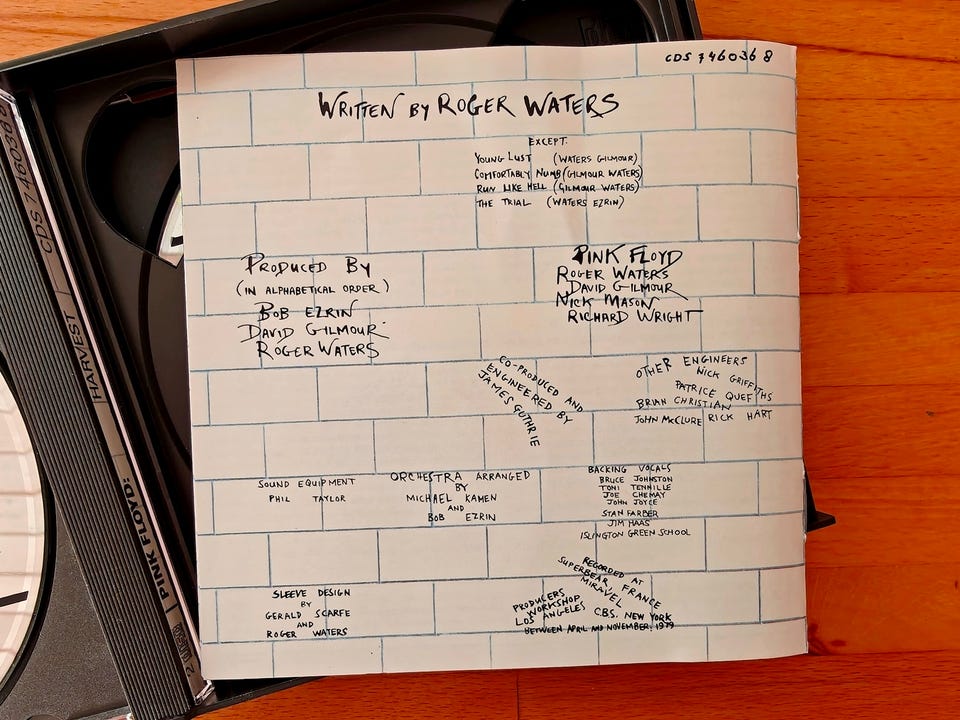 CDS 7 46036 8
WRITTEN BY ROGER WATERS
EXCEPT:
YOUNG LUST (WATERS GILMOUR)
COMFORTABLY NUMB (GILMOUR WATERS)
RUN LIKE HELL (GILMOUR WATERS)
THE TRIAL (WATERS EZRIN)
PRODUCED BY
(IN ALPHABETICAL ORDER)
BOB EZRIN
DAVID GILMOUR
ROGER WATERS
PINK FLOYD
ROGER WATERS
DAVID GILMOUR
NICK MASON
RICHARD WRIGHT
CO-PRODUCED AND
ENGINEERED BY
JAMES GUTHRIE
OTHER ENGINEERS
NICK GRIFFITHS
PATRICE QUEF
BRIAN CHRISTIAN
JOHN McCLURE RICK HART
SOUND EQUIPMENT
PHIL TAYLOR
ORCHESTRA ARRANGED
BY
MICHAEL KAMEN
AND
BOB EZRIN
BACKING VOCALS
BRUCE JOHNSTON
TONI TENNILLE
JOE CHEMAY
JOHN JOYCE
STAN FARBER
JIM HAAS
ISLINGTON GREEN SCHOOL
SLEEVE DESIGN
BY
GERALD SCARFE
AND
ROGER WATERS
RECORDED AT
SUPERBEAR, FRANCE
MIRAVEL
PRODUCERS
WORKSHOP
LOS ANGELES C.B.S. NEW YORK
BETWEEN APRIL AND NOVEMBER, 1979
CDS 7 46036 8
HARVEST
PINK FLOYD: